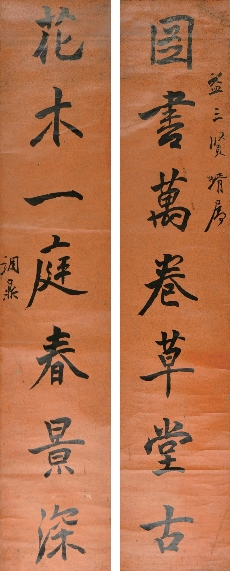 图書萬卷草堂古
益三賢婿屬
花木一庭春景深
調鼎